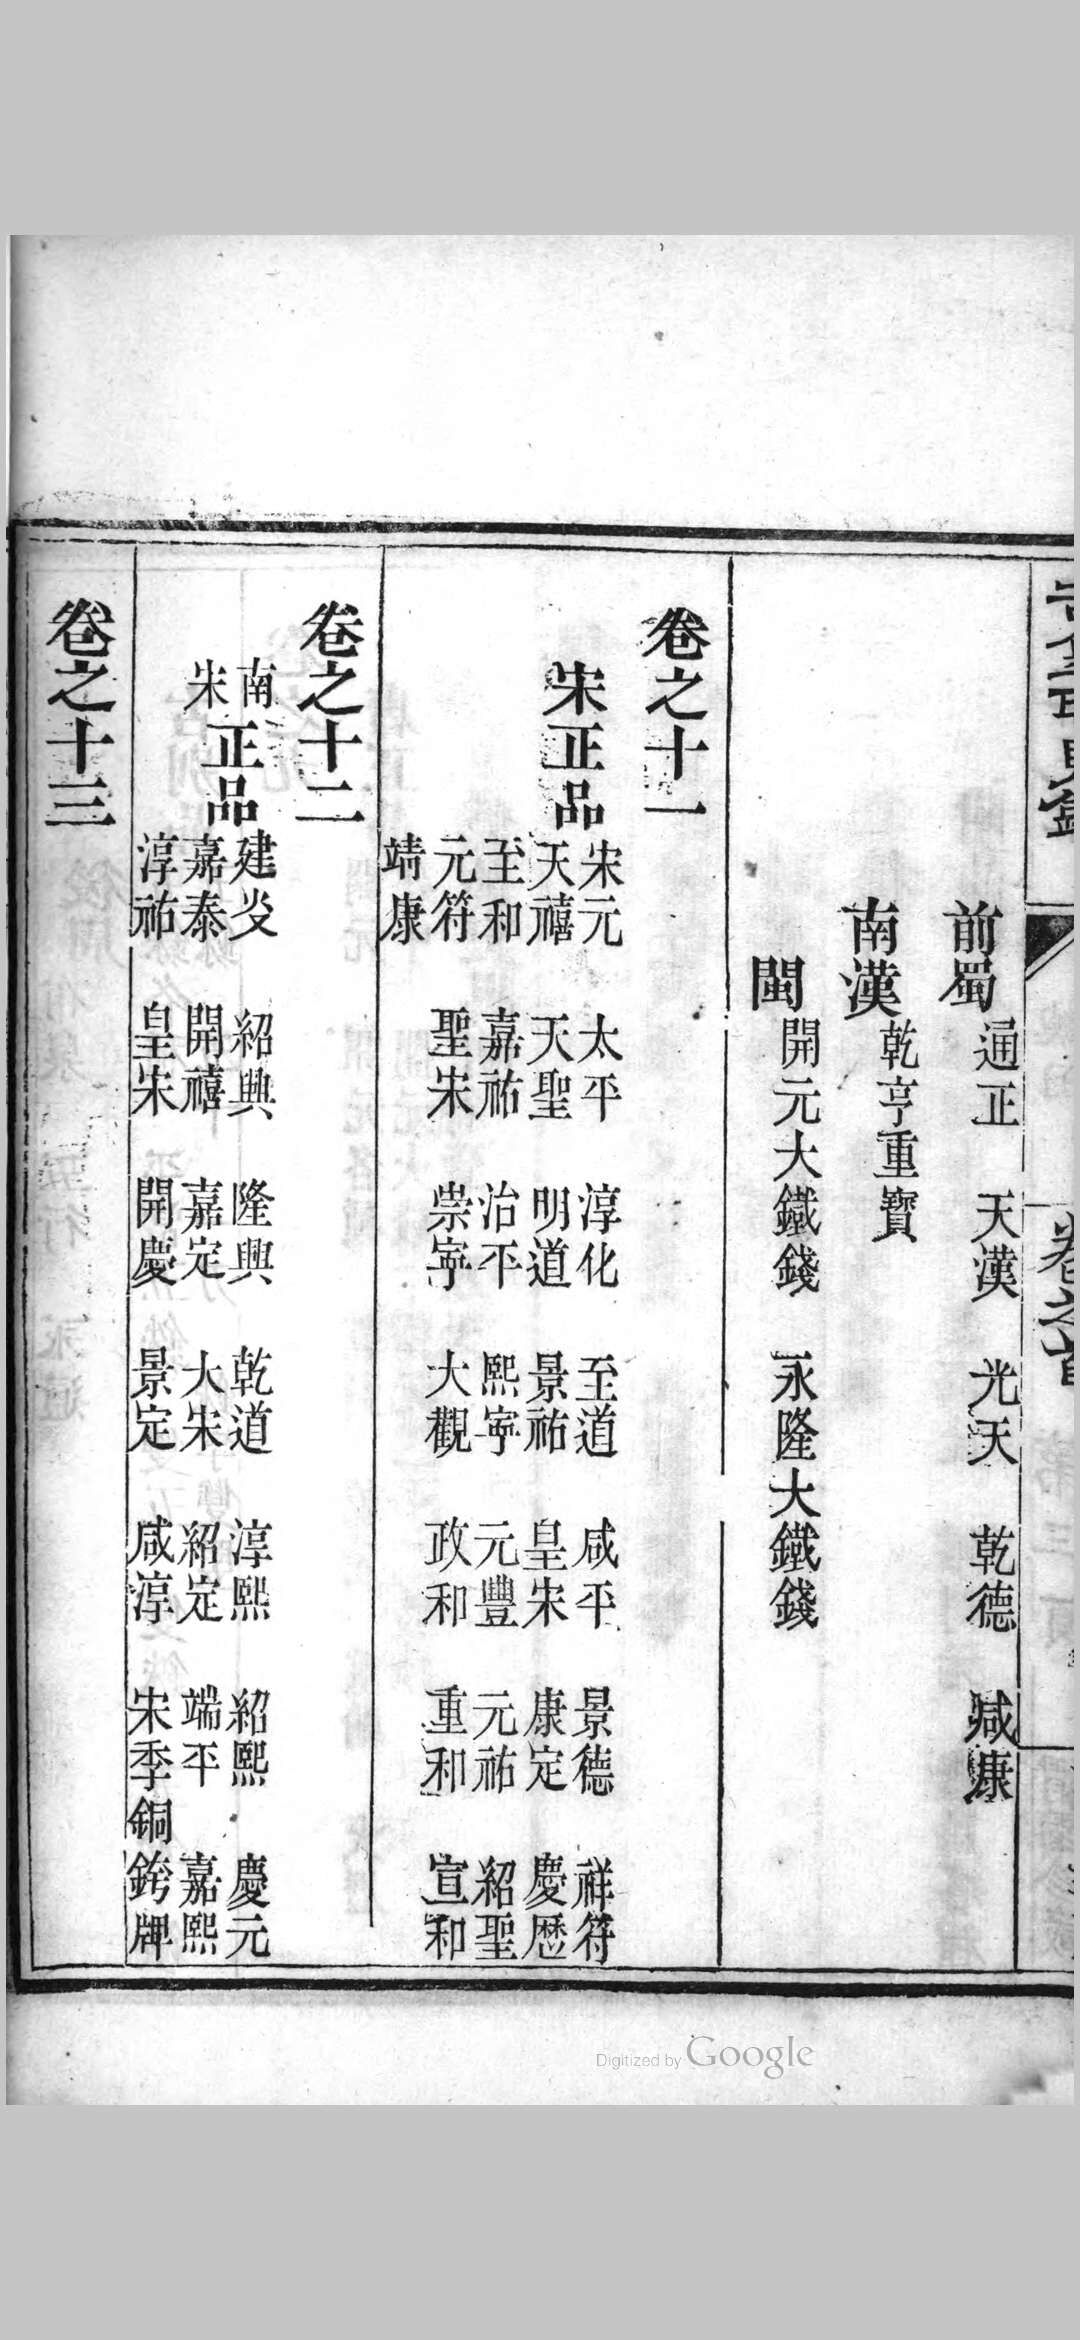 卷之首
前蜀 通正 天漢 光天 乾德 咸康
南漢 乾亨重寶
閩 開元大鐵錢 永隆大鐵錢
卷之十一
宋正品 宋元 太平 淳化 至道 咸平 景德 祥符
天禧 天聖 明道 景祐 皇宋 康定 慶歷
至和 嘉祐 治平 熙寧 元豐 元祐 紹聖
元符 聖宋 崇寧 大觀 政和 重和 宣和
靖康
卷之十二
南宋正品 建炎 紹興 隆興 乾道 淳熙 紹熙 慶元
嘉泰 開禧 嘉定 大宋 紹定 端平 嘉熙
淳祐 皇宋 開慶 景定 咸淳 宋季銅銙牌
卷之十三
Digitized by Google